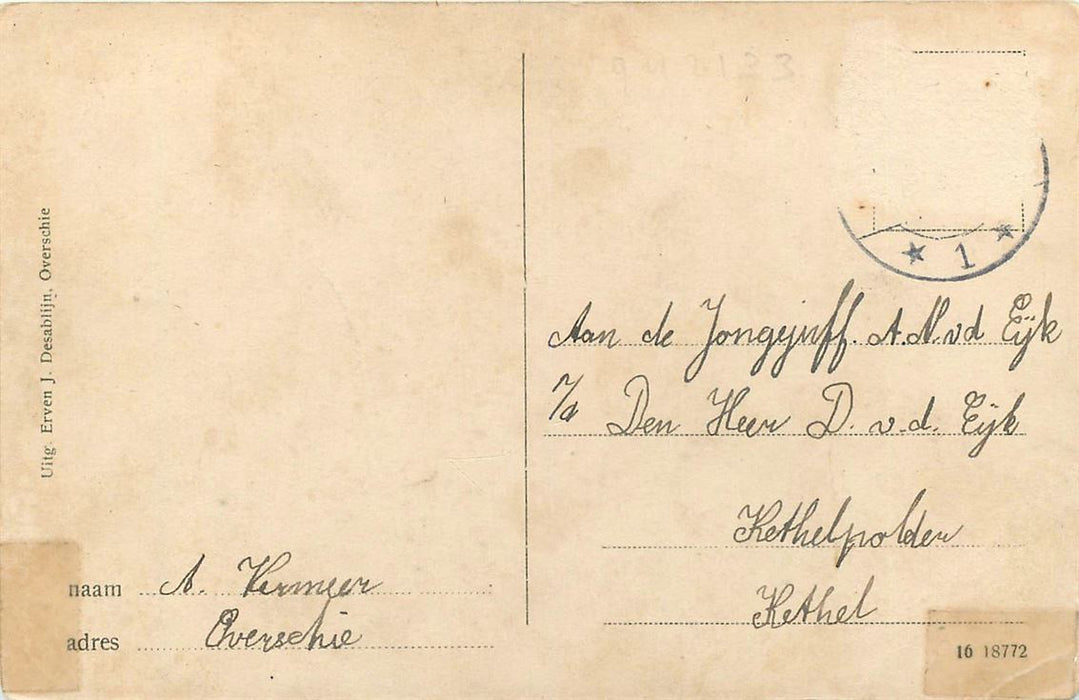 Uitg. Erven J. Desablijn, Overschie
naam A. Vermeer
adres Overschie
1
Aan de Jongejuff. A. N. v d Eijk
p/a Den Heer D. v. d. Eijk
Kethelpolder
Kethel
16 18772